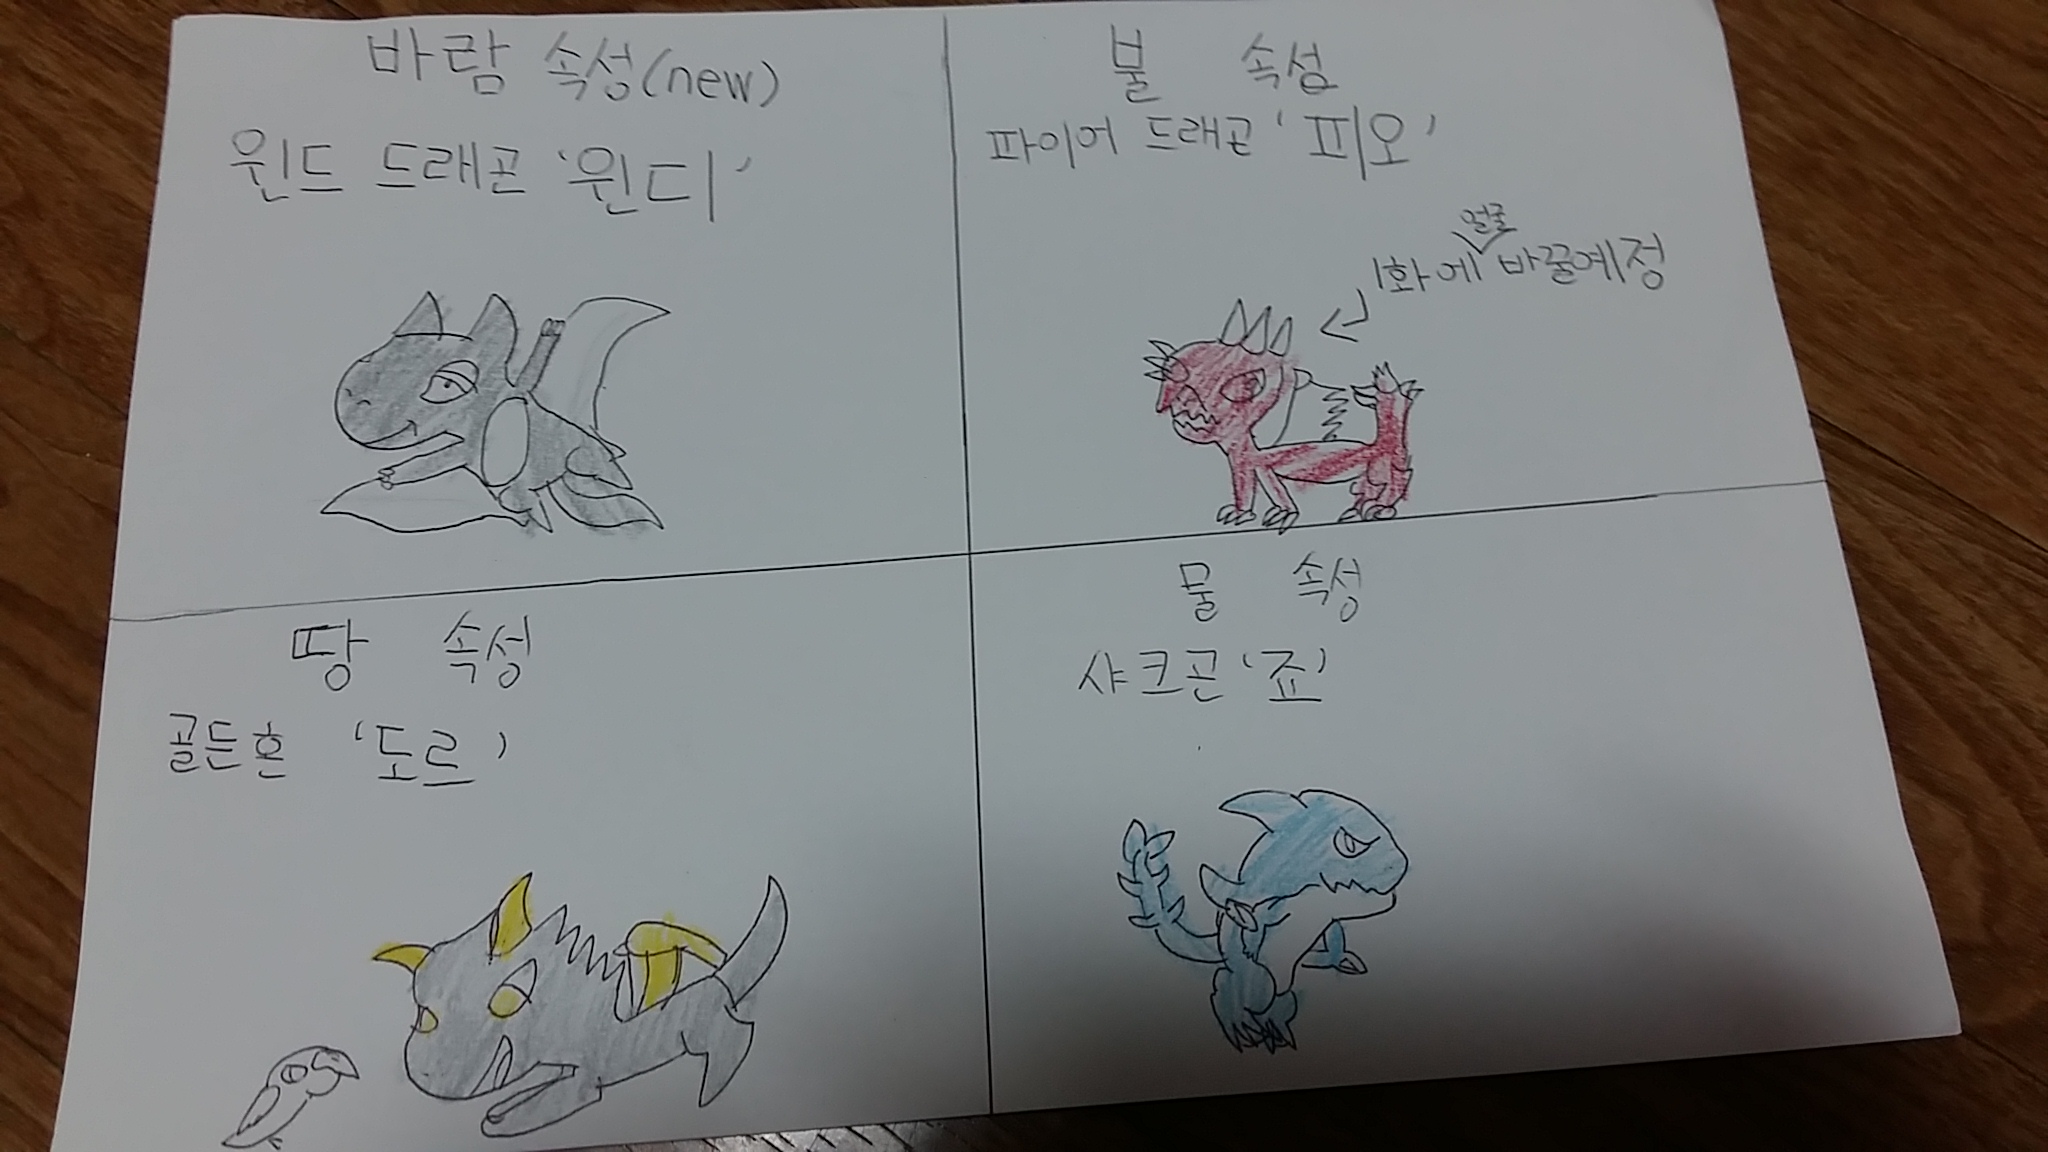 바람 속성(new)
윈드 드래곤 '윈디'
불 속성
파이어 드래곤 '피오'
얼굴
1화에 바꿀예정
땅 속성
골든혼 '도르'
물 속성
샤크곤 '죠'